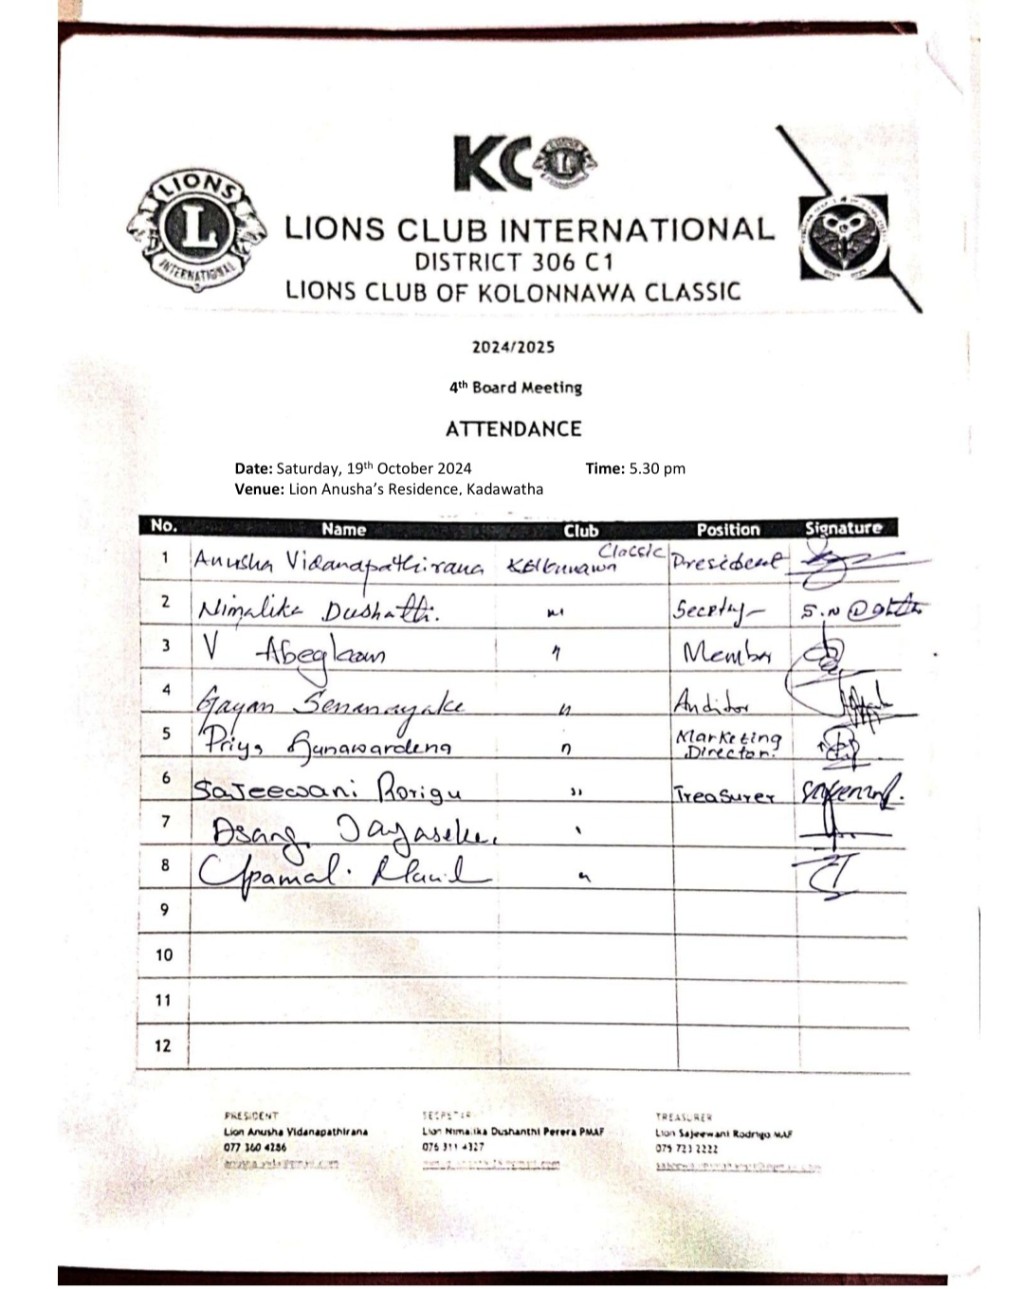 KC
LIONS
L
INTERNATIONAL
LIONS CLUB INTERNATIONAL
DISTRICT 306 C1
LIONS CLUB OF KOLONNAWA CLASSIC
2024/2025
4th Board Meeting
ATTENDANCE
Date: Saturday, 19th October 2024 Time: 5.30 pm
Venue: Lion Anusha's Residence, Kadawatha
No. Name Club Position Signature
1 Anusha Vidanapathirana Classic President
2 Nimalika Dushatti. " S.N
3 V " Member
4 Gayan Senanayake " Auditor
5 Priya Gunawardena " Marketing Director.
6 Sajeewani Rorigu " Treasurer
7
8 "
9
10
11
12
PRESIDENT TREASURER
Lion Anusha Vidanapathirana Lion Nimalika Dushanthi Perera PMAF Lion Sajeewani Rodrigo MAF
077 360 4286 076 311 4327 075 723 2222